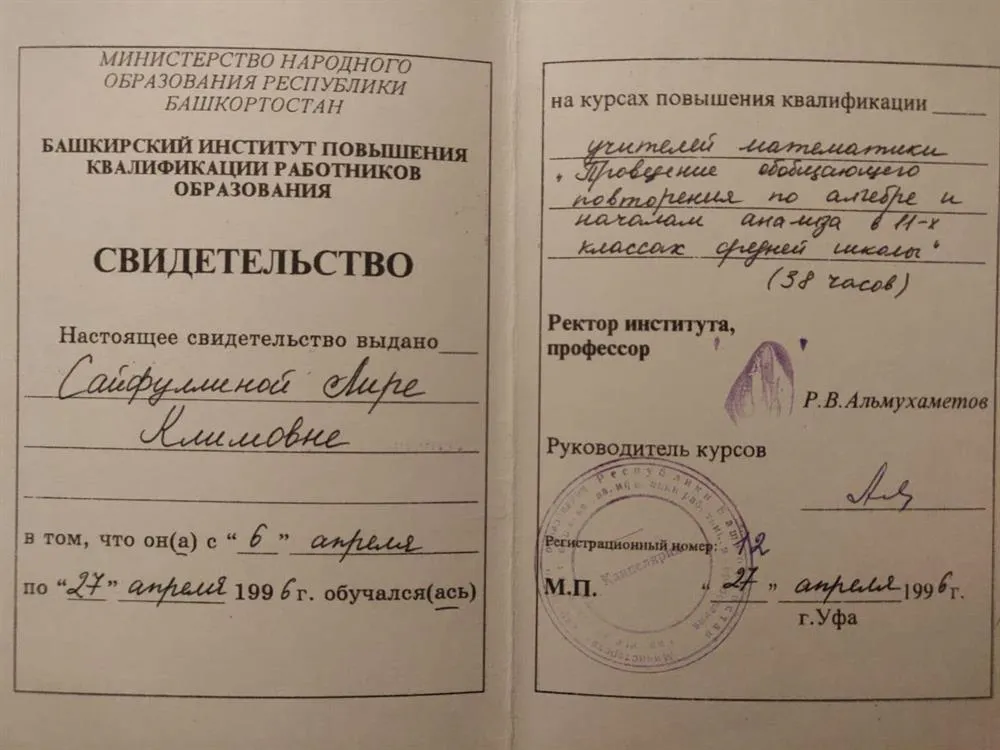 МИНИСТЕРСТВО НАРОДНОГО
ОБРАЗОВАНИЯ РЕСПУБЛИКИ
БАШКОРТОСТАН
БАШКИРСКИЙ ИНСТИТУТ ПОВЫШЕНИЯ
КВАЛИФИКАЦИИ РАБОТНИКОВ
ОБРАЗОВАНИЯ
СВИДЕТЕЛЬСТВО
Настоящее свидетельство выдано
Сайфуллиной Лире
Климовне
в том, что он(а) с “6” апреля
по “27” апреля 1996 г. обучался(ась)
на курсах повышения квалификации
учителей математики
„Проведение обобщающего
повторения по алгебре и
началам анализа в 11-х
классах средней школы“
(38 часов)
Ректор института,
профессор
Р.В.Альмухаметов
Руководитель курсов
Регистрационный номер: 12
Канцелярия
М.П. “27” апреля 1996 г.
г.Уфа